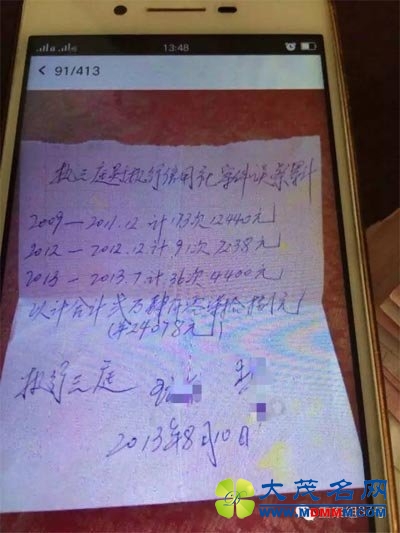 13:48
91/413
执三庭对执行信用社案件误餐累计
2009—2011.12计173次12440元
2012—2012.12计91次7238元
2013—2013.7计36次4400元
以计合计贰万肆仟零柒拾捌元
(¥24078元)
执行三庭
2013年8月10日
大茂名网